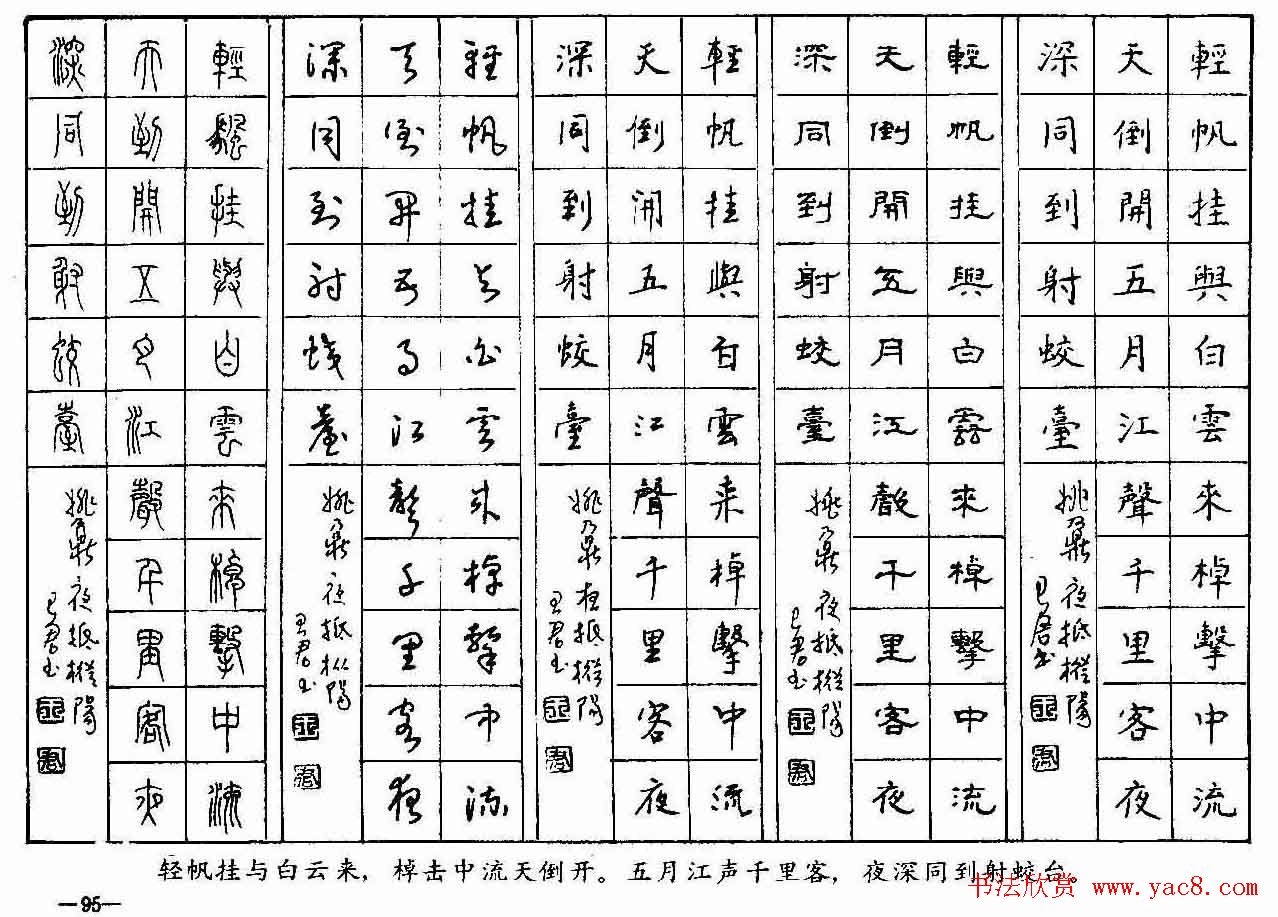 輕帆挂與白雲來棹擊中流
天倒開五月江聲千里客夜
深同到射蛟臺
姚鼐夜抵樅陽
輕帆挂與白雲來棹擊中流
天倒開五月江聲千里客夜
深同到射蛟臺
姚鼐夜抵樅陽
輕帆挂與白雲来棹擊中流
天倒開五月江聲千里客夜
深同到射蛟臺
姚鼐夜抵樅陽
輕帆挂与白雲来棹擊中流
天倒開五月江聲千里客夜
深同到射蛟臺
姚鼐夜抵樅陽
輕颿挂與白雲來棹擊中流
天到開五月江聲千里客夜
深同到射蛟臺
姚鼐夜抵樅陽
轻帆挂与白云来，棹击中流天倒开。五月江声千里客，夜深同到射蛟台。
—95—
书法欣赏 www.yac8.com